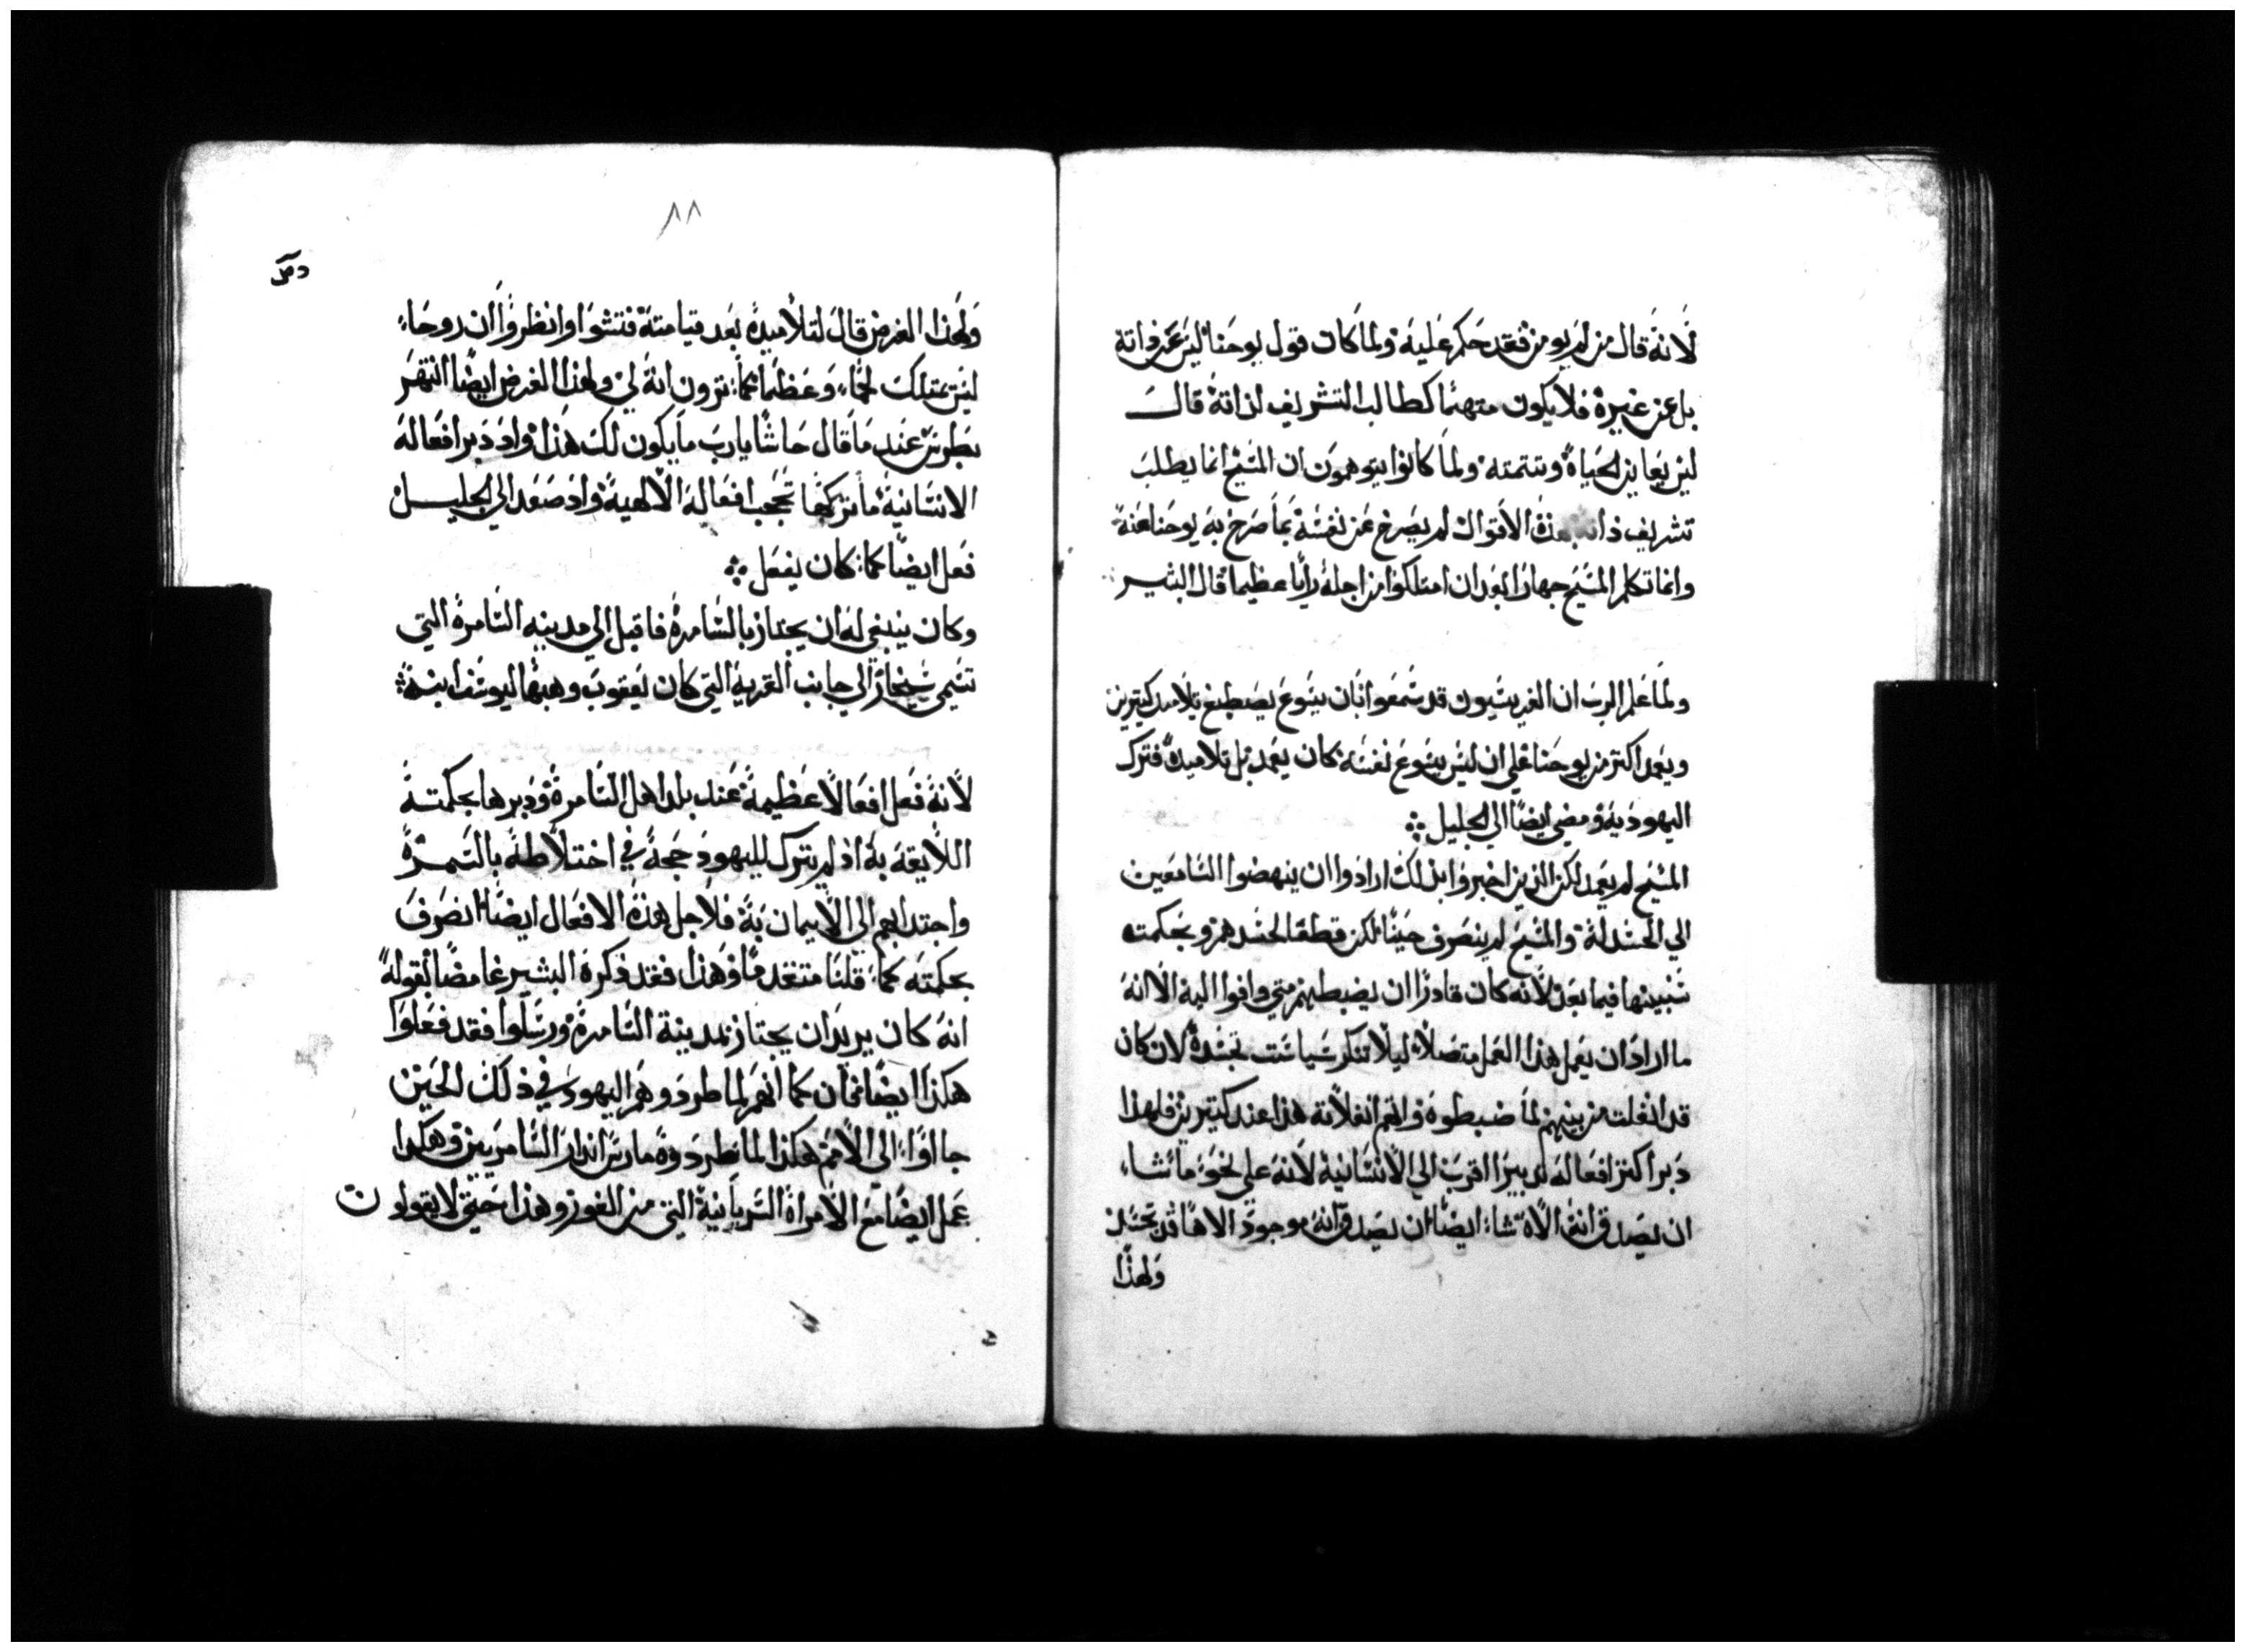 لانه قال من لم يومن فقد حكم عليه ولما كان قول يوحنا ليس عن ذاته
بل عن غيره فلا يكون متهمًا كطالب التشريف لذاته قال
ليس يعاين الحياة وتتمته ولما كانوا يتوهمون ان المسيح انما يطلب
تشريف ذاته بهذه الاقوال لم يصرح عن نفسه بما صرح به يوحنا عنه
وانما تكلم المسيح جهارًا بعد ان امتلكوا من اجله رأيًا عظيمًا قال البشير
ولما علم الرب ان الفريسيون قد سمعوا بان يسوع يصطبغ تلاميد كتيرين
ويعمد اكتر من يوحنا على ان ليس يسوع نفسه كان يعمد بل تلاميده فترك
اليهودية ومضى ايضًا الي الجليل
المسيح لم يعمد لكن الذين اخبروا بذلك ارادوا ان ينهضوا السامعين
الي الحسد له والمسيح لم ينصرف حينًا لكن قطعًا لحسدهم وبحكمته
سنبينها فيما بعد لانه كان قادرًا ان يضبطهم متي وافوا اليه الا انه
ما اراد ان يعمل هذا العمل متصلًا ليلا تنكر سياست تجسده لان كان
قد انفلت من بينهم لما ضبطوه انفلاته هذا عند كتيرين فلهذا
دبر اكتر افعاله تدبيرًا اقرب الي الانسانية لانه علي نحو ما نشاء
ان يصدق انه الاه نشاء ايضًا ان يصدق انه موجود الاهًا قد تجسد
ولهذا
٨٨
ولهذا الغرض قال لتلاميده بعد قيامته فتشوا وانظروا ان روحًا
ليس يمتلك لحمًا وعظمًا كما ترون انه لي ولهذا الغرض ايضًا انتهر
بطرس عند ما قال حاشا يارب ما يكون لك هذا واد دبر افعاله
الانسانية ما تركها تحجب افعاله الالهية واد صعد الي الجليل
فعل ايضًا كما كان يفعل
وكان ينبغي له ان يجتاز بالسامرة فاقبل الي مدينه السامرة التي
تسمي سيخار الي جانب القرية التي كان يعقوب وهبها ليوسف ابنه
لانه فعل افعالًا عظيمة عند بلد اهل السامرة ودبرها بحكمته
اللايقه به اذ لم يترك لليهود حجة في اختلاطه بالسمرة
واجتدابهم الي الايمان به فلاجل هذه الافعال ايضًا انصرف
بحكمته كما قلنا متقدمًا وهذا فقد ذكره البشير غامضًا بقوله
انه كان يريد ان يجتاز بمدينة السامرة ورسلوا فقد فعلوا
هكذا ايضًا كما انهم لما طردوهم اليهود في ذلك الحين
جااوا الي الامم هكذا لما طردوه مارس انذار السامريين وهكدا
عمل ايضًا مع الامراة السريانية التي من الغور وهذا حتي لا يقولون